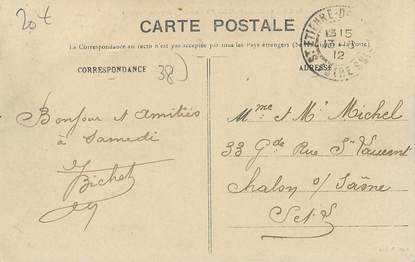 20t
CARTE POSTALE
La Correspondance au recto n'est pas acceptée par tous les Pays étrangers (Se renseigner à la Poste)
CORRESPONDANCE
38
ADRESSE
ETIENNE-D
13 15
12
Bonjour et Amitiés
à Samedi
Bichet
Mme et Mr Michel
33 Gde Rue St Laurent
Chalon s/ Saône
S et L